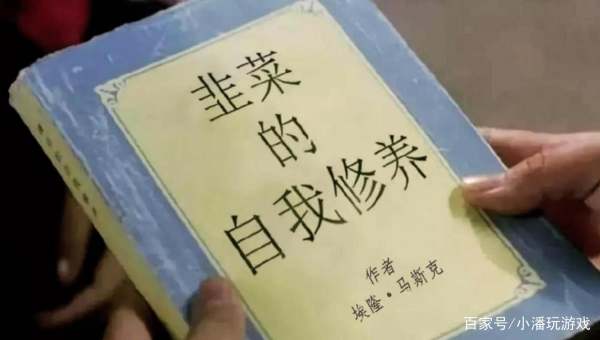 韭菜
的
自我修养
作者
埃隆·马斯克
百家号/小潘玩游戏